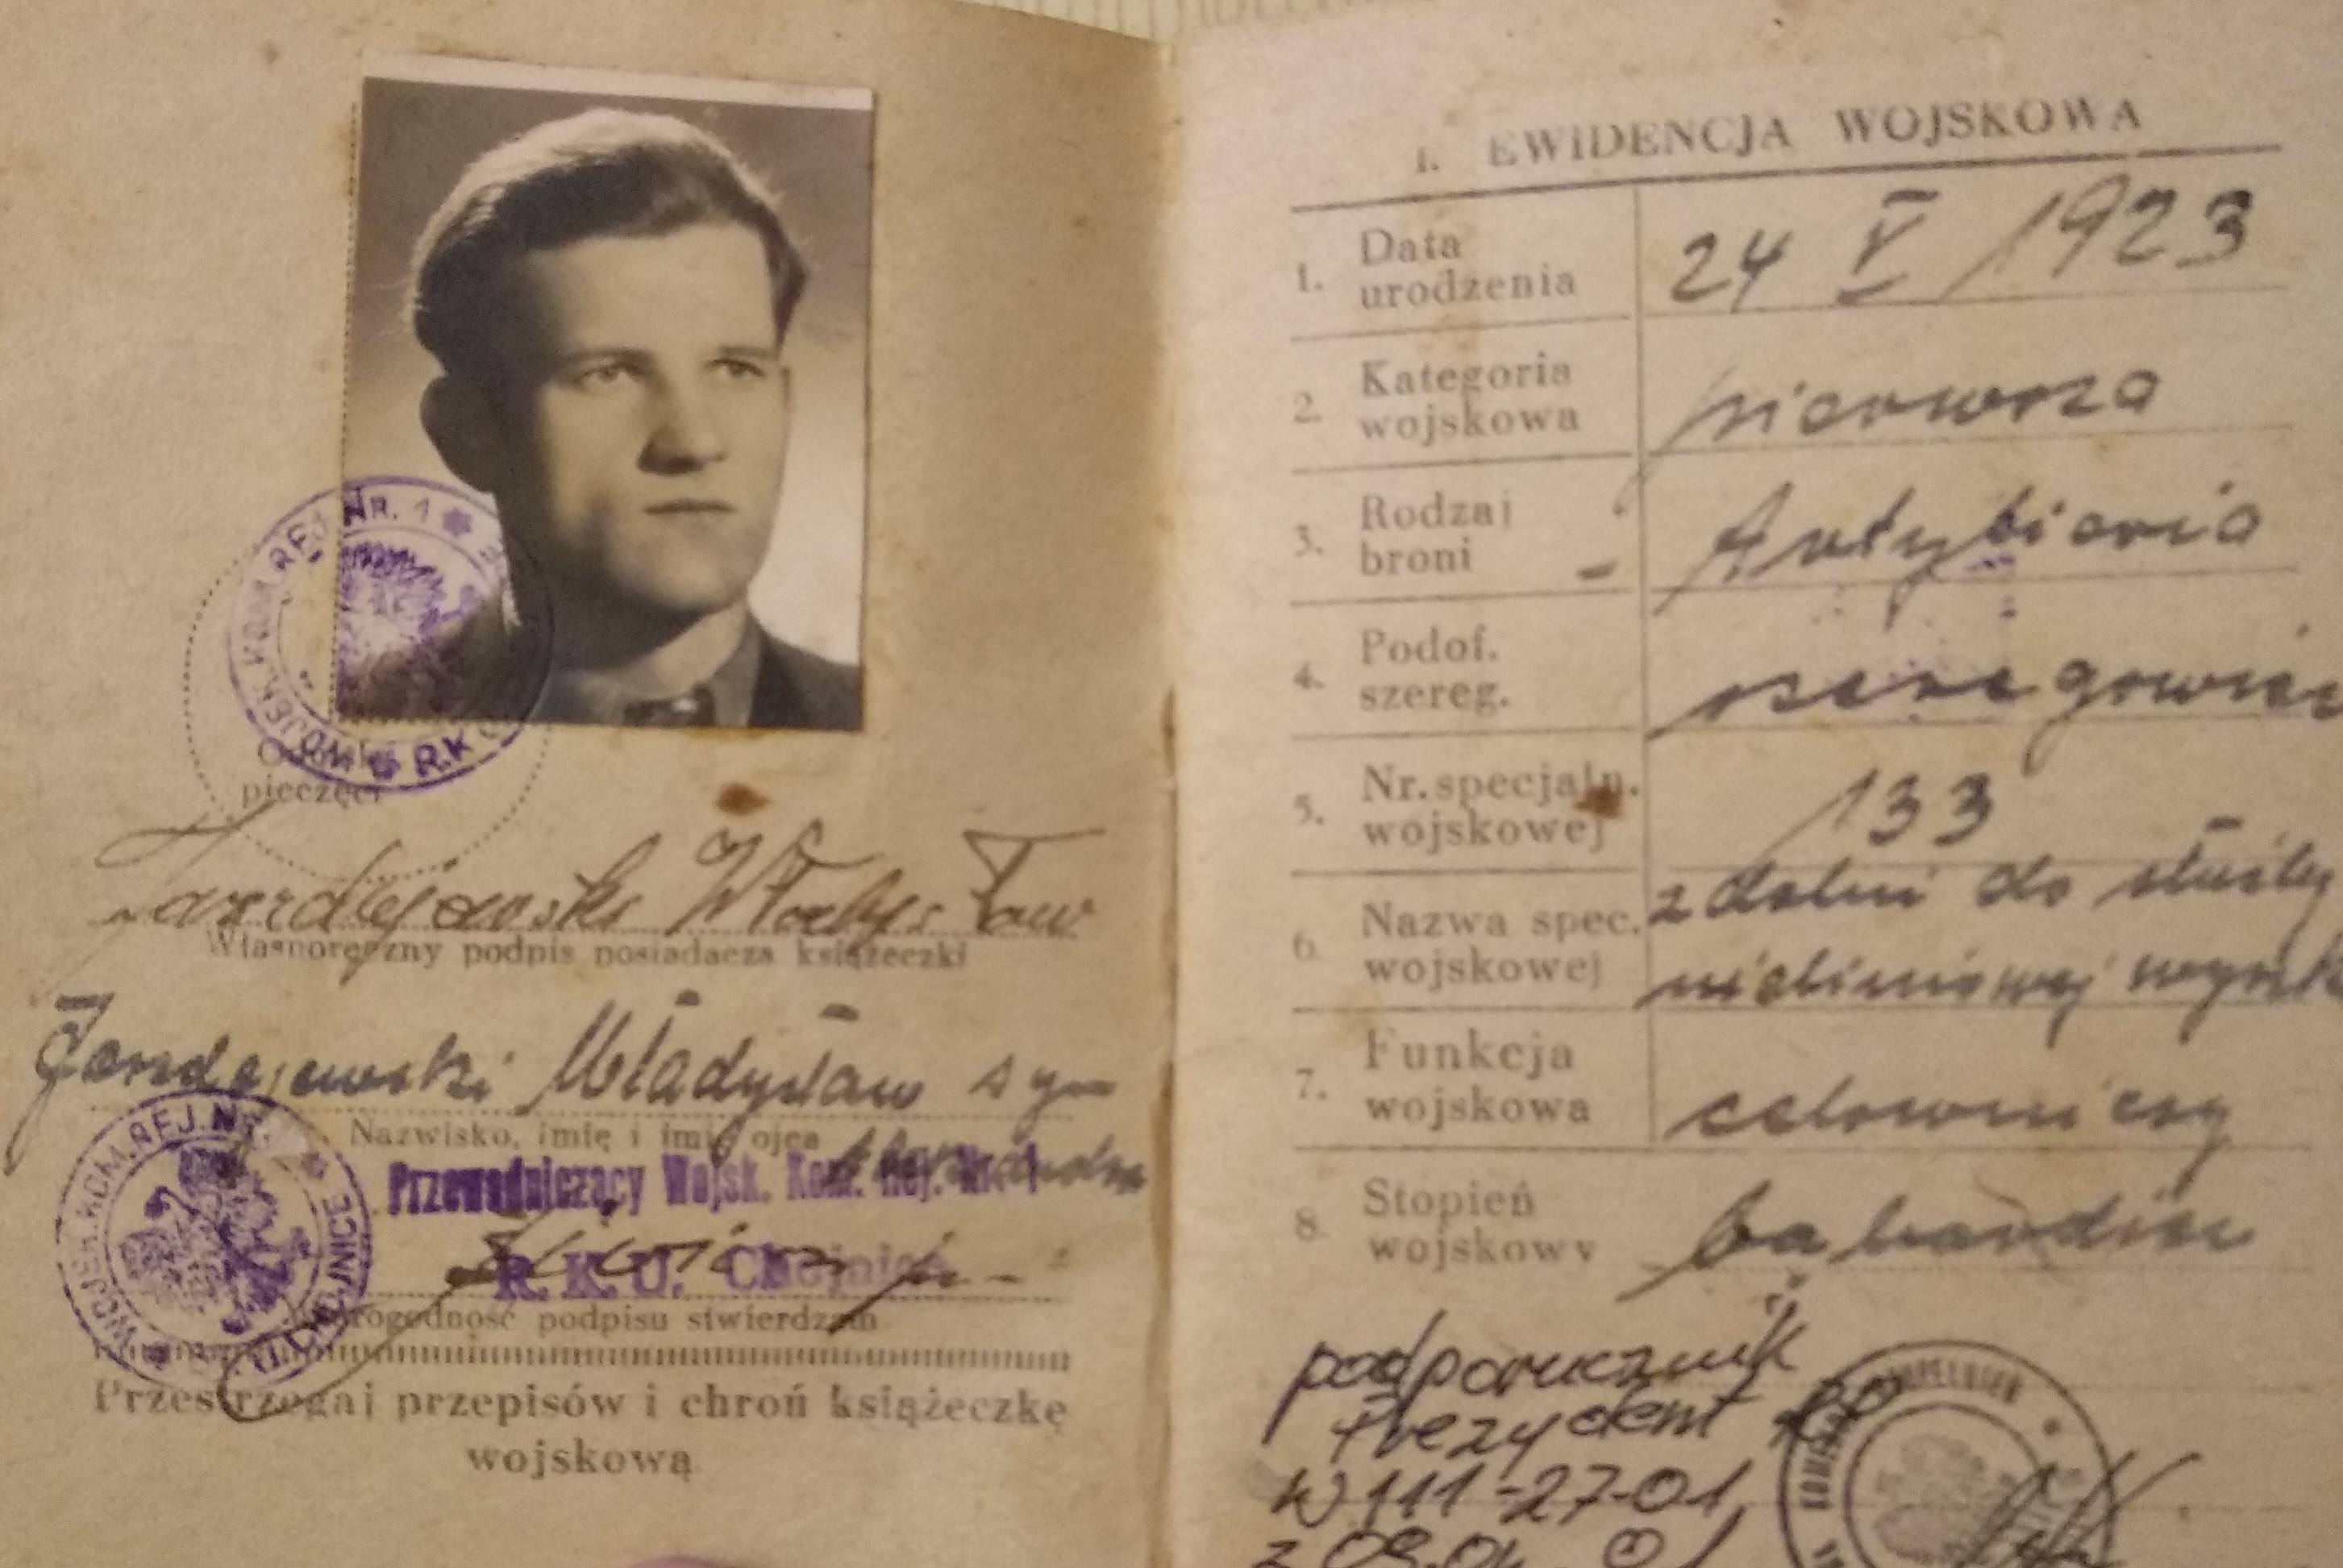 WOJSK. KOM. REJ. NR. 1 * R.K.U.
pieczęci
Władysław
Własnoręczny podpis posiadacza książeczki
Władysław syn
Nazwisko, imię i imię ojca
WOJSK. KOM. REJ. NR. * R.K.U. CHOJNICE
Przewodniczący Wojsk. Kom. Rej. Nr. 1
R. K. U. Chojnice
podpisu stwierdzam
Przestrzegaj przepisów i chroń książeczkę
wojskową
I. EWIDENCJA WOJSKOWA
1. Data urodzenia 24 V 1923
2. Kategoria wojskowa pierwsza
3. Rodzaj broni Artyleria
4. Podof. szereg.
5. Nr. specjaln. wojskowej 133
6. Nazwa spec. wojskowej zdolni do służby
nieliniowej
7. Funkcja wojskowa celowniczy
8. Stopień wojskowy
podporucznik
Prezydent RP
W 111-27-01